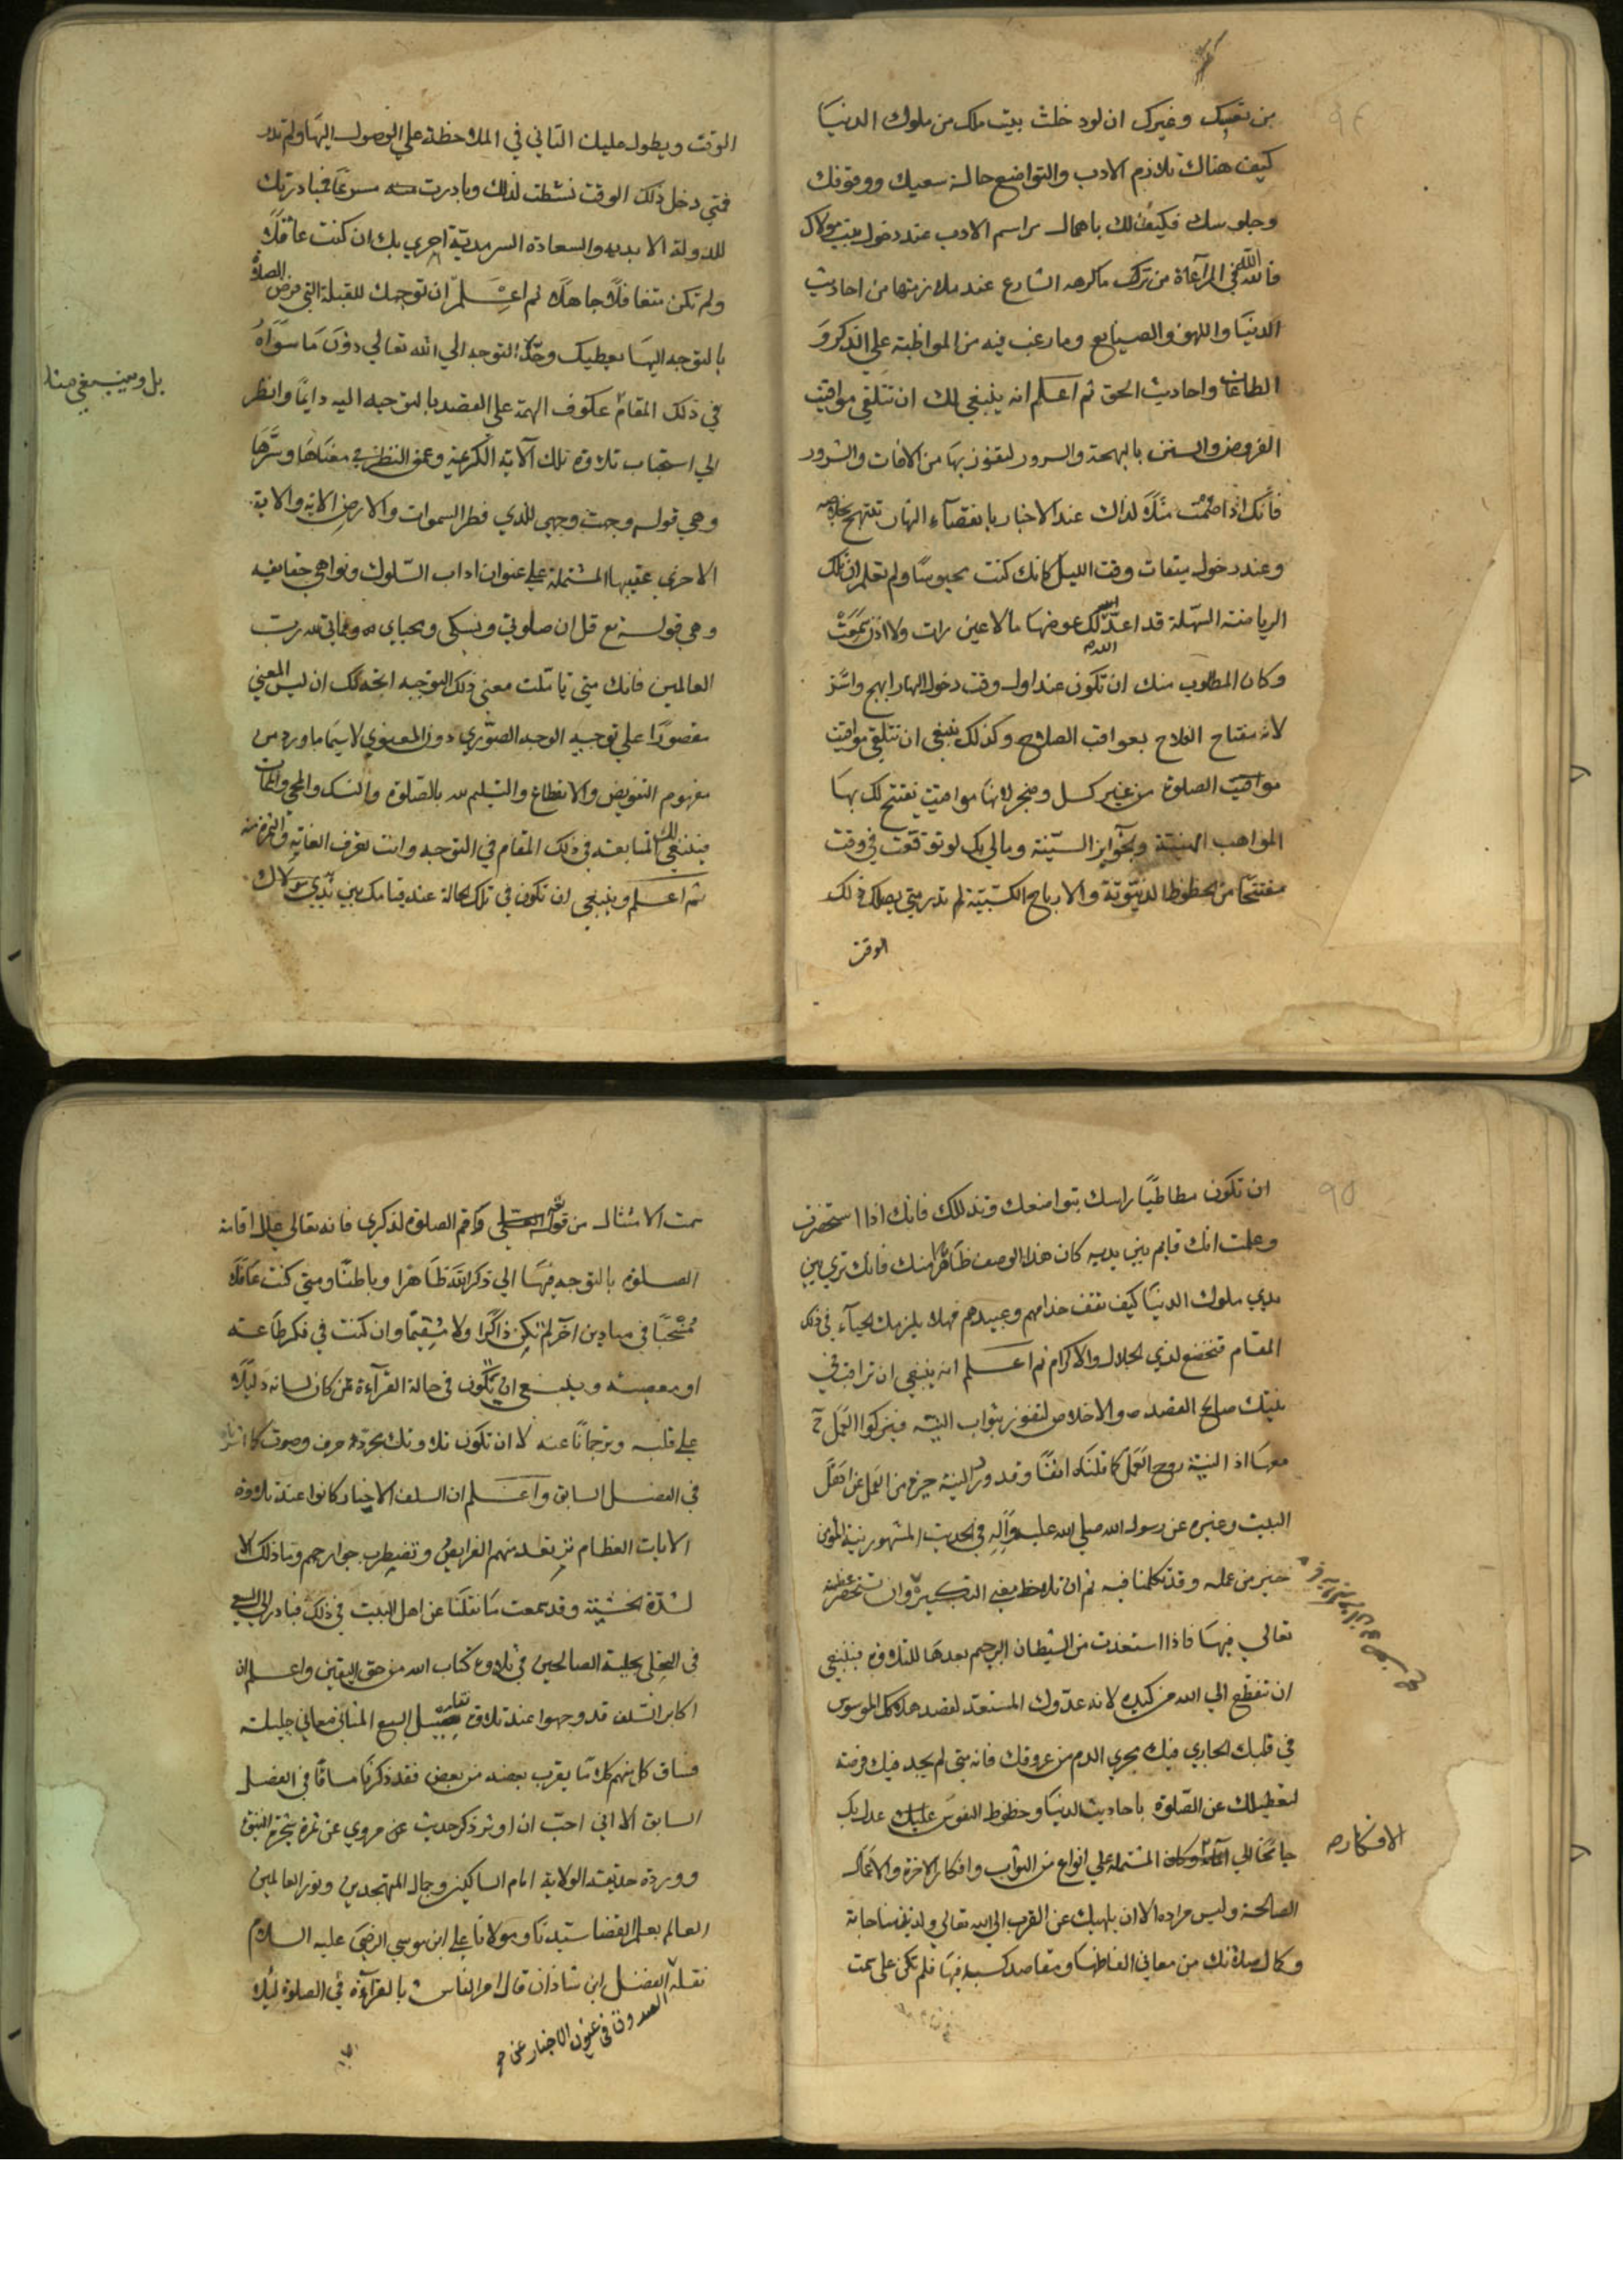 من نفسك وغيرك ان لو دخلت بيت ملك من ملوك الدنيا
كيف هناك تلازم الادب والتواضع حالة سعيك ووقوفك
وجلوسك فكيف لك باهمال مراسم الادب عند دخول بيت مولاك
فالله الله في المراعاة من ترك ما كرهه الشارع عند ملازمتها من احاديث
الدنيا واللهو والصنايع وما رغب فيه من المواظبة علي الذكر و
الطاعات واحاديث الحق ثم اعلم انه ينبغي لك ان تتلقي مواقيت
الفروض والسنن بالبهجة والسرور لتفوز بها من الافات والشرور
فانك اذا صمت مثلا لذاك عند الاخبار بانقضاء النهار تبتهج
وعند دخول ميقات وقت الليل كانك كنت محبوسا ولم تعلم ان تلك
الرياضة السهلة قد اعد الله لك عوضها ما لا عين رات ولا اذن سمعت
وكان المطلوب منك ان تكون عند اول وقت دخول النهار ابهج واسر
لانه مفتاح الفلاح بعواقب الصلاح وكذلك ينبغي ان تتلقي مواقيت
مواقيت الصلوة من غير كسل وضجر لانها مواقيت تفتتح لك بها
المواهب الهنيئة والجوايز السنية ومالي بك لو توقعت في وقت
مفتتحا من الحظوظ الدنيوية والارباح الكسبية لم تدر متي يصلك ذلك
الوقت
الوقت ويطول عليك التاني في الملاحظة علي الوصول اليها ولم تدر
فمتي دخل ذلك الوقت نشطت لذلك وبادرت مسرعا فمبادرتك
للدولة الابدية والسعادة السرمدية احري بك ان كنت عاقلا
ولم تكن متغافلا جاهلا ثم اعلم ان توجهك للقبلة التي فرض الصلاة
بالتوجه اليها يعطيك وجه التوجه الي الله تعالي دون ما سواه
بل وينبغي منا
في ذلك المقام عكوف الهمة علي القصد بالتوجه اليه دايما وانظر
الي استحباب تلاوة تلك الآية الكريمة وعمق النظر في معناها وسرها
وهي قوله وجهت وجهي للذي فطر السموات والارض الاية والاية
الاخري عقيبها المشتملة علي عنوان اداب السلوك ونواهي حقايقه
وهي قوله تع قل ان صلوتي ونسكي ومحياي ومماتي لله رب
العالمين فانك متي تاملت معني ذلك التوجه اتجه لك ان ليس المعني
مقصورا علي توجيه الوجه الصوري دون المعنوي لا سيما ما ورد من
مفهوم التفويض والانقطاع والتسليم لله بالصلوة والنسك والمحيا والممات
فينبغي لك المتابعة في ذلك المقام في التوجه وانت تعرف الغاية والثمرة منه
ثم اعلم وينبغي ان تكون في تلك الحالة عند قيامك بين يدي مولاك
ان تكون مطاطيا راسك بتواضعك وتذللك فانك اذا استحضرت
وعلمت انك قايم بين يديه كان هذا الوصف ظاهرا منك فانك تري بين
يدي ملوك الدنيا كيف تقف خدامهم وعبيدهم فهلا يلزمك الحياء في ذلك
المقام فتخضع لذي الجلال والاكرام ثم اعلم انه ينبغي ان تراقب في
نيتك صالح القصد والاخلاص لتفوز بثواب النية فيزكوا العمل
معها اذ النية روح العمل كما قلناه انفا وقد ورد النية خير من العمل عن اهل
البيت وغيره عن رسول الله صلي الله عليه وآله في الحديث المشهور نية المؤمن
خير من عمله وقد تكلمنا فيه ثم ان تلاحظ معني التكبيرة وان تستحضر عظمته
تعالي فيها فاذا استعذت من الشيطان الرجيم بعدها للتلاوة فينبغي
ان تنقطع الي الله من كيده لانه عدوك المستعد لقصد هلاكك الموسوس
في قلبك الجاري فيك مجري الدم من عروقك فانه متي لم يجد فيك فرصة
لتعطيلك عن الصلوة باحاديث الدنيا وحظوظ النفوس عدل بك
الافكار
جانحا الي المشتملة علي انواع من الثواب وافكار الاخرة والاعمال
الصالحة وليس مراده الا ان يلهيك عن القرب الي الله تعالي ولذيذ مناجاته
وكمال صلاتك من معاني الفاظها ومقاصد كسبه فيها فلم تكن علي سمت
سمت الامتثال من قوله واقم الصلوة لذكري فانه تعالي علل اقامة
الصلوة بالتوجه فيها الي ذكر الله ظاهرا وباطنا ومتي كنت غافلا
في ميادين آخر لم تكن ذاكرا ولا مقيما وان كنت في فكر طاعته
او معصيته وينبغي ان تكون في حالة القرآءة ممن كان لسانه دليلا
علي قلبه وترجمانا عنه لا ان تكون تلاوتك مجرد حرف وصوت كما اشرنا
في الفصل السابق واعلم ان السلف الاخيار كانوا عند تلاوة
الايات العظام ترتعد منهم الفرايص وتضطرب جوارحهم وما ذلك الا
لشدة الخشية وقد سمعت ما نقلنا عن اهل البيت في ذلك فبادر الي السعي
في التحلي بحلية الصالحين في تلاوة كتاب الله من حق اليقين واعلم ان
اكابر السلف قد وجهوا عند تلاوة السبع المثاني معاني جليلة
فساق كل منهم كلاما يقرب بعضه من بعض فقد ذكرنا مساقا في الفصل
السابق الا اني احب ان اوثر ذكر حديث عن مروي عن ثمرة شجرة النبوة
ووردة حديقة الولاية امام السالكين وجمال المتهجدين ونور العالمين
العالم بعلم القضا سيدنا ومولانا علي ابن موسي الرضي عليه السلام
نقله الفضل ابن شاذان قال امر الناس بالقرآءة في الصلوة ليلا
الصدوق في عيون الاخبار عن